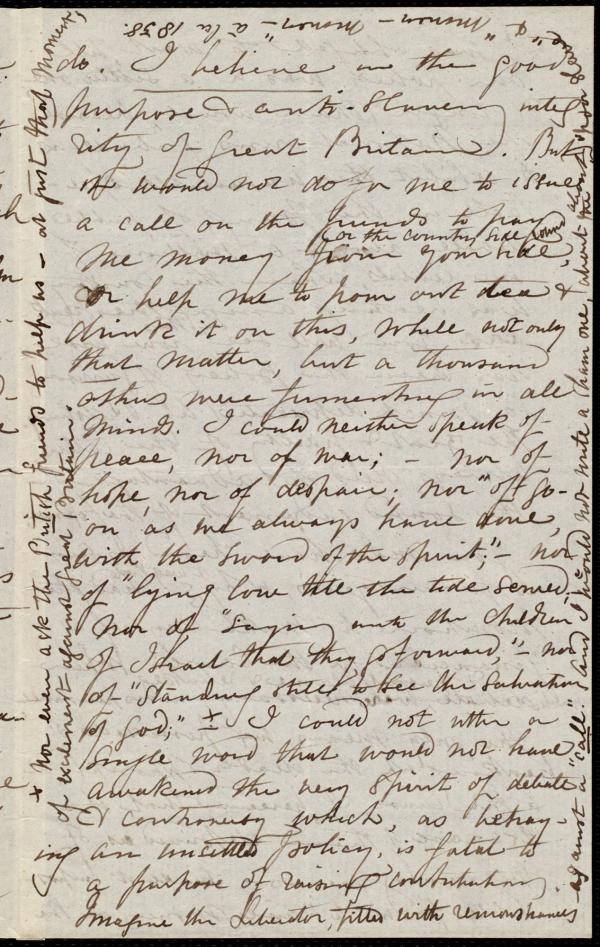 do. I believe in the good
purpose & anti-slavery integ
rity of Great Britain. But
it would not do for me to issue
a call on the friends to pay
(or the country side round)
me money from your side
or help me to pour out tea &
drink it on this, while not only
that matter, but a thousand
others were fermenting in all
minds. I could neither speak of
peace, nor of war; - nor of
hope, nor of despair; nor "of go-
on, as we always have done,
with the sword of the spirit;" - nor
of "lying low till the tide served,"
Nor of "saying unto the children
of Israel that they go forward," - nor
of "standing still to see the salvation
of God;" x I could not utter a
single word that would not have
awakened the very spirit of debate
& controversy which, as betray-
ing an unsettled policy, is fatal to
a purpose of raising contributions.
Imagine the Liberator, filled with remonstrances
against a "call." And I would not write a sham one, about the
& "à la 1858.
x Nor even ask the British friends to help us - at just that moment
of excitement against Great Britain.